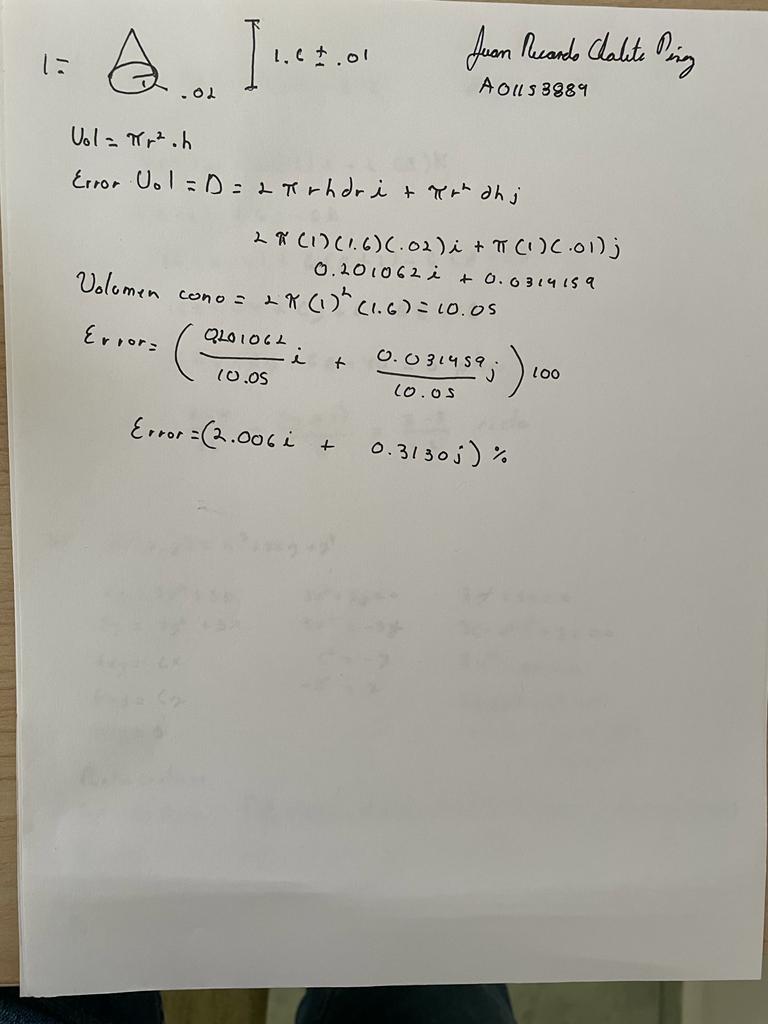 1= 1 .02 1.6 ± .01 Juan Ricardo
A01153889
Vol = πr². h
Error Vol = D = 2πrhdr i + πr² dh j
2π(1)(1.6)(.02)i + π(1)(.01)j
0.201062i + 0.0314159
Volumen cono = 2π(1)²(1.6) = 10.05
Error= (0.201062/10.05 i + 0.031459/10.05 j) 100
Error=(2.006i + 0.3130j) %